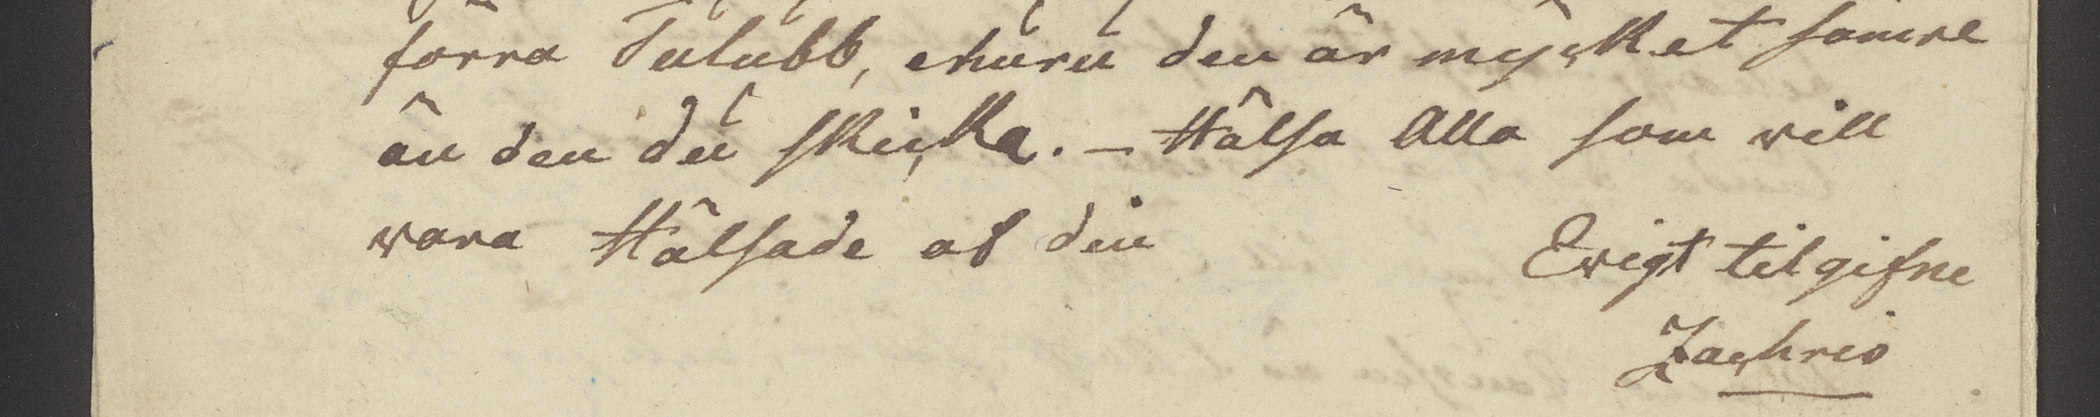 förra Tulubb, ehuru den är mycket sämre
än den du skicka. – Hälsa Alla som vill
vara Hälsade af din
Evigt tilgifne
Zachris